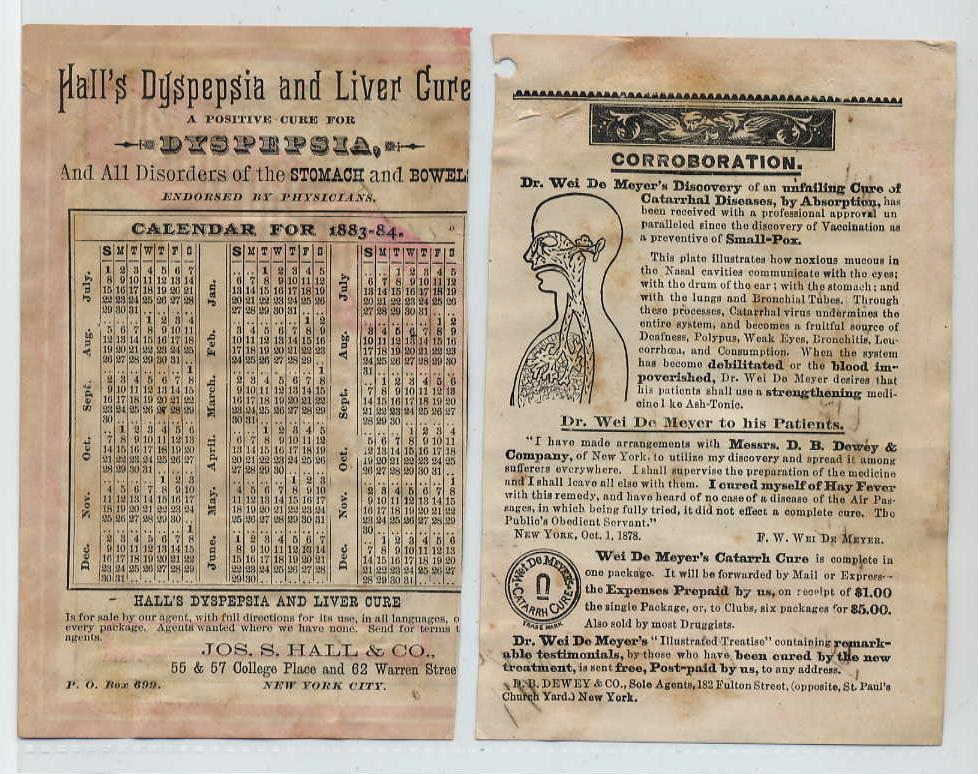 Hall's Dyspepsia and Liver Cure
A POSITIVE CURE FOR
DYSPEPSIA,
And All Disorders of the STOMACH and BOWELS
ENDORSED BY PHYSICIANS.
CALENDAR FOR 1883-84.
S M T W T F S
July.
1 2 3 4 5 6 7
8 9 10 11 12 13 14
15 16 17 18 19 20 21
22 23 24 25 26 27 28
29 30 31
Aug.
1 2 3 4
5 6 7 8 9 10 11
12 13 14 15 16 17 18
19 20 21 22 23 24 25
26 27 28 29 30 31
Sept.
1
2 3 4 5 6 7 8
9 10 11 12 13 14 15
16 17 18 19 20 21 22
23 24 25 26 27 28 29
30
Oct.
1 2 3 4 5 6
7 8 9 10 11 12 13
14 15 16 17 18 19 20
21 22 23 24 25 26 27
28 29 30 31
Nov.
1 2 3
4 5 6 7 8 9 10
11 12 13 14 15 16 17
18 19 20 21 22 23 24
25 26 27 28 29 30
Dec.
1
2 3 4 5 6 7 8
9 10 11 12 13 14 15
16 17 18 19 20 21 22
23 24 25 26 27 28 29
30 31
S M T W T F S
Jan.
1 2 3 4 5
6 7 8 9 10 11 12
13 14 15 16 17 18 19
20 21 22 23 24 25 26
27 28 29 30 31
Feb.
1 2
3 4 5 6 7 8 9
10 11 12 13 14 15 16
17 18 19 20 21 22 23
24 25 26 27 28 29
March.
1
2 3 4 5 6 7 8
9 10 11 12 13 14 15
16 17 18 19 20 21 22
23 24 25 26 27 28 29
30 31
April.
1 2 3 4 5
6 7 8 9 10 11 12
13 14 15 16 17 18 19
20 21 22 23 24 25 26
27 28 29 30
May.
1 2 3
4 5 6 7 8 9 10
11 12 13 14 15 16 17
18 19 20 21 22 23 24
25 26 27 28 29 30 31
June.
1 2 3 4 5 6 7
8 9 10 11 12 13 14
15 16 17 18 19 20 21
22 23 24 25 26 27 28
29 30
S M T W T F S
July
1 2 3 4 5
6 7 8 9 10 11 12
13 14 15 16 17 18 19
20 21 22 23 24 25 26
27 28 29 30 31
Aug.
1 2
3 4 5 6 7 8 9
10 11 12 13 14 15 16
17 18 19 20 21 22 23
24 25 26 27 28 29 30
31
Sept.
1 2 3 4 5 6
7 8 9 10 11 12 13
14 15 16 17 18 19 20
21 22 23 24 25 26 27
28 29 30
Oct.
1 2 3 4
5 6 7 8 9 10 11
12 13 14 15 16 17 18
19 20 21 22 23 24 25
26 27 28 29 30 31
Nov.
1
2 3 4 5 6 7 8
9 10 11 12 13 14 15
16 17 18 19 20 21 22
23 24 25 26 27 28 29
30
Dec.
1 2 3 4 5 6
7 8 9 10 11 12 13
14 15 16 17 18 19 20
21 22 23 24 25 26 27
28 29 30 31
HALL'S DYSPEPSIA AND LIVER CURE
Is for sale by our agent, with full directions for its use, in all languages, o
every package. Agents wanted where we have none. Send for terms t
agents.
JOS. S. HALL & CO.,
55 & 57 College Place and 62 Warren Stree
P. O. Box 699. NEW YORK CITY.
CORROBORATION.
Dr. Wei De Meyer's Discovery of an unfailing Cure of
Catarrhal Diseases, by Absorption, has
been received with a professional approval un
paralleled since the discovery of Vaccination as
a preventive of Small-Pox.
This plate illustrates how noxious mucous in
the Nasal cavities communicate with the eyes;
with the drum of the ear; with the stomach; and
with the lungs and Bronchial Tubes. Through
these processes, Catarrhal virus undermines the
entire system, and becomes a fruitful source of
Deafness, Polypus, Weak Eyes, Bronchitis, Leu-
corrhœa, and Consumption. When the system
has become debilitated or the blood im-
poverished, Dr. Wei De Meyer desires that
his patients shall use a strengthening medi-
cine l ke Ash-Tonic.
Dr. Wei De Meyer to his Patients.
"I have made arrangements with Messrs. D. B. Dewey &
Company, of New York, to utilize my discovery and spread it among
sufferers everywhere. I shall supervise the preparation of the medicine
and I shall leave all else with them. I cured myself of Hay Fever
with this remedy, and have heard of no case of a disease of the Air Pas-
sages, in which being fully tried, it did not effect a complete cure. The
Public's Obedient Servant."
NEW YORK, Oct. 1, 1878. F. W. WEI DE MEYER.
WEI DE MEYER'S
CATARRH CURE
TRADE MARK
Wei De Meyer's Catarrh Cure is complete in
one package. It will be forwarded by Mail or Express--
the Expenses Prepaid by us, on receipt of $1.00
the single Package, or, to Clubs, six packages for $5.00.
Also sold by most Druggists.
Dr. Wei De Meyer's "Illustrated Treatise" containing remark-
able testimonials, by those who have been cured by the new
treatment, is sent free, Post-paid by us, to any address.
D. B. DEWEY & CO., Sole Agents, 182 Fulton Street, (opposite, St. Paul's
Church Yard.) New York.